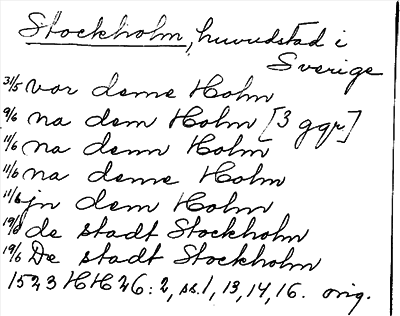 Stockholm, huvudstad i
Sverige
31/5 vor deme Holm
9/6 na dem Holm [3 ggr]
11/6 na denn Holm
11/6 na deme Holm
11/6 jn dem Holm
19/6 de stadt Stockholm
19/6 De stadt Stockholm
1523 HH 26:2, ss. 1, 13, 14, 16. orig.